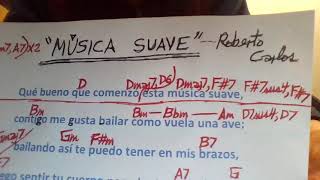 m7,A7)x2 "MÚSICA SUAVE" Roberto
Carlos
D Dmaj7,D6) Dmaj7,F#7 F#7sus4,F#7
Qué bueno que comenzó esta música suave,
Bm Bm — Bbm — Am D7sus4,D7
contigo me gusta bailar como vuela una ave;
Gm F#m B7
bailando así te puedo tener en mis brazos,
A7 G